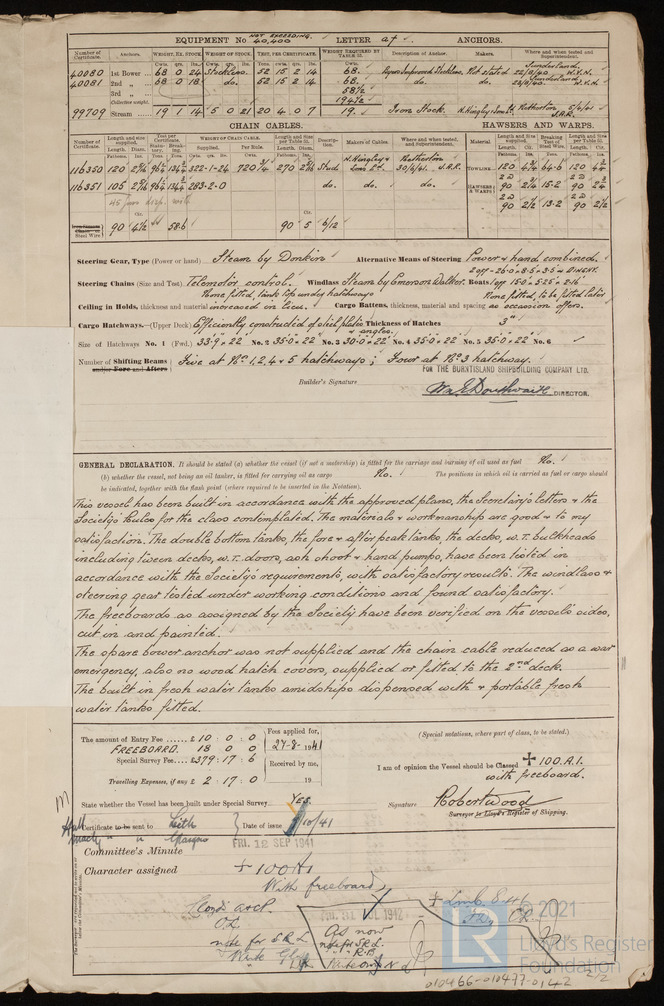 EQUIPMENT No NOT EXCEEDING. 40,400 LETTER a† . ANCHORS.
Number of Certificate. Anchors. WEIGHT, EX. STOCK WEIGHT OF STOCK. TEST, PER CERTIFICATE. WEIGHT REQUIRED BY TABLE 31. Description of Anchor. Makers. Where and when tested and Superintendent.
Cwts. qrs. lbs. Cwts. qrs. lbs. Tons. cwts. qrs. lbs. Cwts.
40080 1st Bower ... 68 0 24 Stockless. 52 15 2 14 68. Byers Improved Stockless. Not stated Sunderland 22/8/40 W.Y.N.
40081 2nd „ ... 68 0 18 do. 52 15 2 14 68. do. do. Sunderland 22/8/40 W.Y.N.
3rd „ ... 58½
Collective weight. 194½
99709 Stream ... 19 1 14 5 0 21 20 4 0 7 19. Iron Stock. N. Hingley & Sons Ld Netherton 5/6/41 J.A.R.
CHAIN CABLES. HAWSERS AND WARPS.
Number of Certificate. Length and size supplied. Test per Certificate. WEIGHT OF CHAIN CABLE. Length and Size per Table 31. Description. Makers of Cables. Where and when tested, and Superintendent. Material Length and Size supplied. Breaking Test of Steel Wire. Length and Size per Table 31.
Length. Diam. Statutory. Breaking. Supplied. Per Rule. Length. Diam. Length. Cir. Length. Cir.
116350 120 322-1-24 720¾ 270 Stud N. Hingley & Sons Ld. Netherton 30/6/41. J.A.R. TOWLINE 120 64.6 120
116351 105 283-2-0 do. do. do. HAWSERS & WARPS 90 2¼ 15.2 90
90 2½ 13.2 90 2½
Steel Wire 90 4½ 58.6 90 5 6/12
Steering Gear, Type (Power or hand) Steam by Donkin Alternative Means of Steering Power & hand combined.
Steering Chains (Size and Test) Telemotor control. Windlass Steam by Emerson Walker. Boats 2 off - 26.0 x 8.5 x 3.5 & DINGHY. 1 off 15.0 x 5.25 x 2.16
Ceiling in Holds, thickness and material None fitted, tank top under hatchways increased in lieu. Cargo Battens, thickness, material and spacing None fitted, to be fitted later as occasion offers.
Cargo Hatchways.—(Upper Deck) Efficiently constructed of steel plates & angles. Thickness of Hatches 3"
Size of Hatchways No. 1 (Fwd.) 33-9 x 22 No. 2 35-0 x 22 No. 3 30-0 x 22 No. 4 35-0 x 22 No. 5 35-0 x 22 No. 6
Number of Shifting Beams and/or Fore and Afters Five at Nos. 1, 2, 4 & 5 hatchways; Four at No 3 hatchway.
FOR THE BURNTISLAND SHIPBUILDING COMPANY LTD.
Builder's Signature DIRECTOR.
GENERAL DECLARATION. It should be stated (a) whether the vessel (if not a motorship) is fitted for the carriage and burning of oil used as fuel No.
(b) whether the vessel, not being an oil tanker, is fitted for carrying oil as cargo No. The positions in which oil is carried as fuel or cargo should
be indicated, together with the flash point (where required to be inserted in the Notation).
This vessel has been built in accordance with the approved plans, the Secretary's letters & the
Society's Rules for the class contemplated. The materials & workmanship are good & to my
satisfaction. The double bottom tanks, the fore & after peak tanks, the decks, w.t. bulkheads
including tween decks, w.t. doors, ash shoot & hand pumps, have been tested in
accordance with the Society's requirements, with satisfactory results. The windlass &
steering gear tested under working conditions and found satisfactory.
The freeboards as assigned by the Society have been verified on the vessel's sides,
cut in and painted.
The spare bower anchor was not supplied and the chain cable reduced as a war
emergency, also no wood hatch covers, supplied or fitted to the 2nd deck.
The built in fresh water tanks amidships dispensed with & portable fresh
water tanks fitted.
The amount of Entry Fee ...... £ 10 : 0 : 0 Fees applied for, (Special notations, where part of class, to be stated.)
FREEBOARD. 18 0 0 27-8-1941
Special Survey Fee.... £379 : 17 : 6 Received by me, I am of opinion the Vessel should be Classed + 100.A.1.
with freeboard.
Travelling Expenses, if any £ 2 : 17 : 0 19
State whether the Vessel has been built under Special Survey YES. Signature Robertwood
Surveyor to Lloyd's Register of Shipping.
Hull Certificate to be sent to Leith Date of issue 1/10/41
Machy " " Glasgow
FRI. 12 SEP 1941
Committee's Minute
Character assigned + 100A1
With freeboard
Lloyd's A&CP.
note for S.R.L.
As now
note for S.R.L.
+ Lmb. 8.41
© 2021
LR
Lloyd's Register
Foundation
010466-010477-0142 2/2